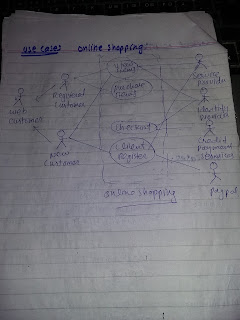 Use Cases Online Shopping
View
Items
Registered
Customer
Web
Customer
Purchase
Items
Service
Provider
Identity
Provider
Checkout
Client
Register
New
Customer
Payment
Online Shopping
Paypal